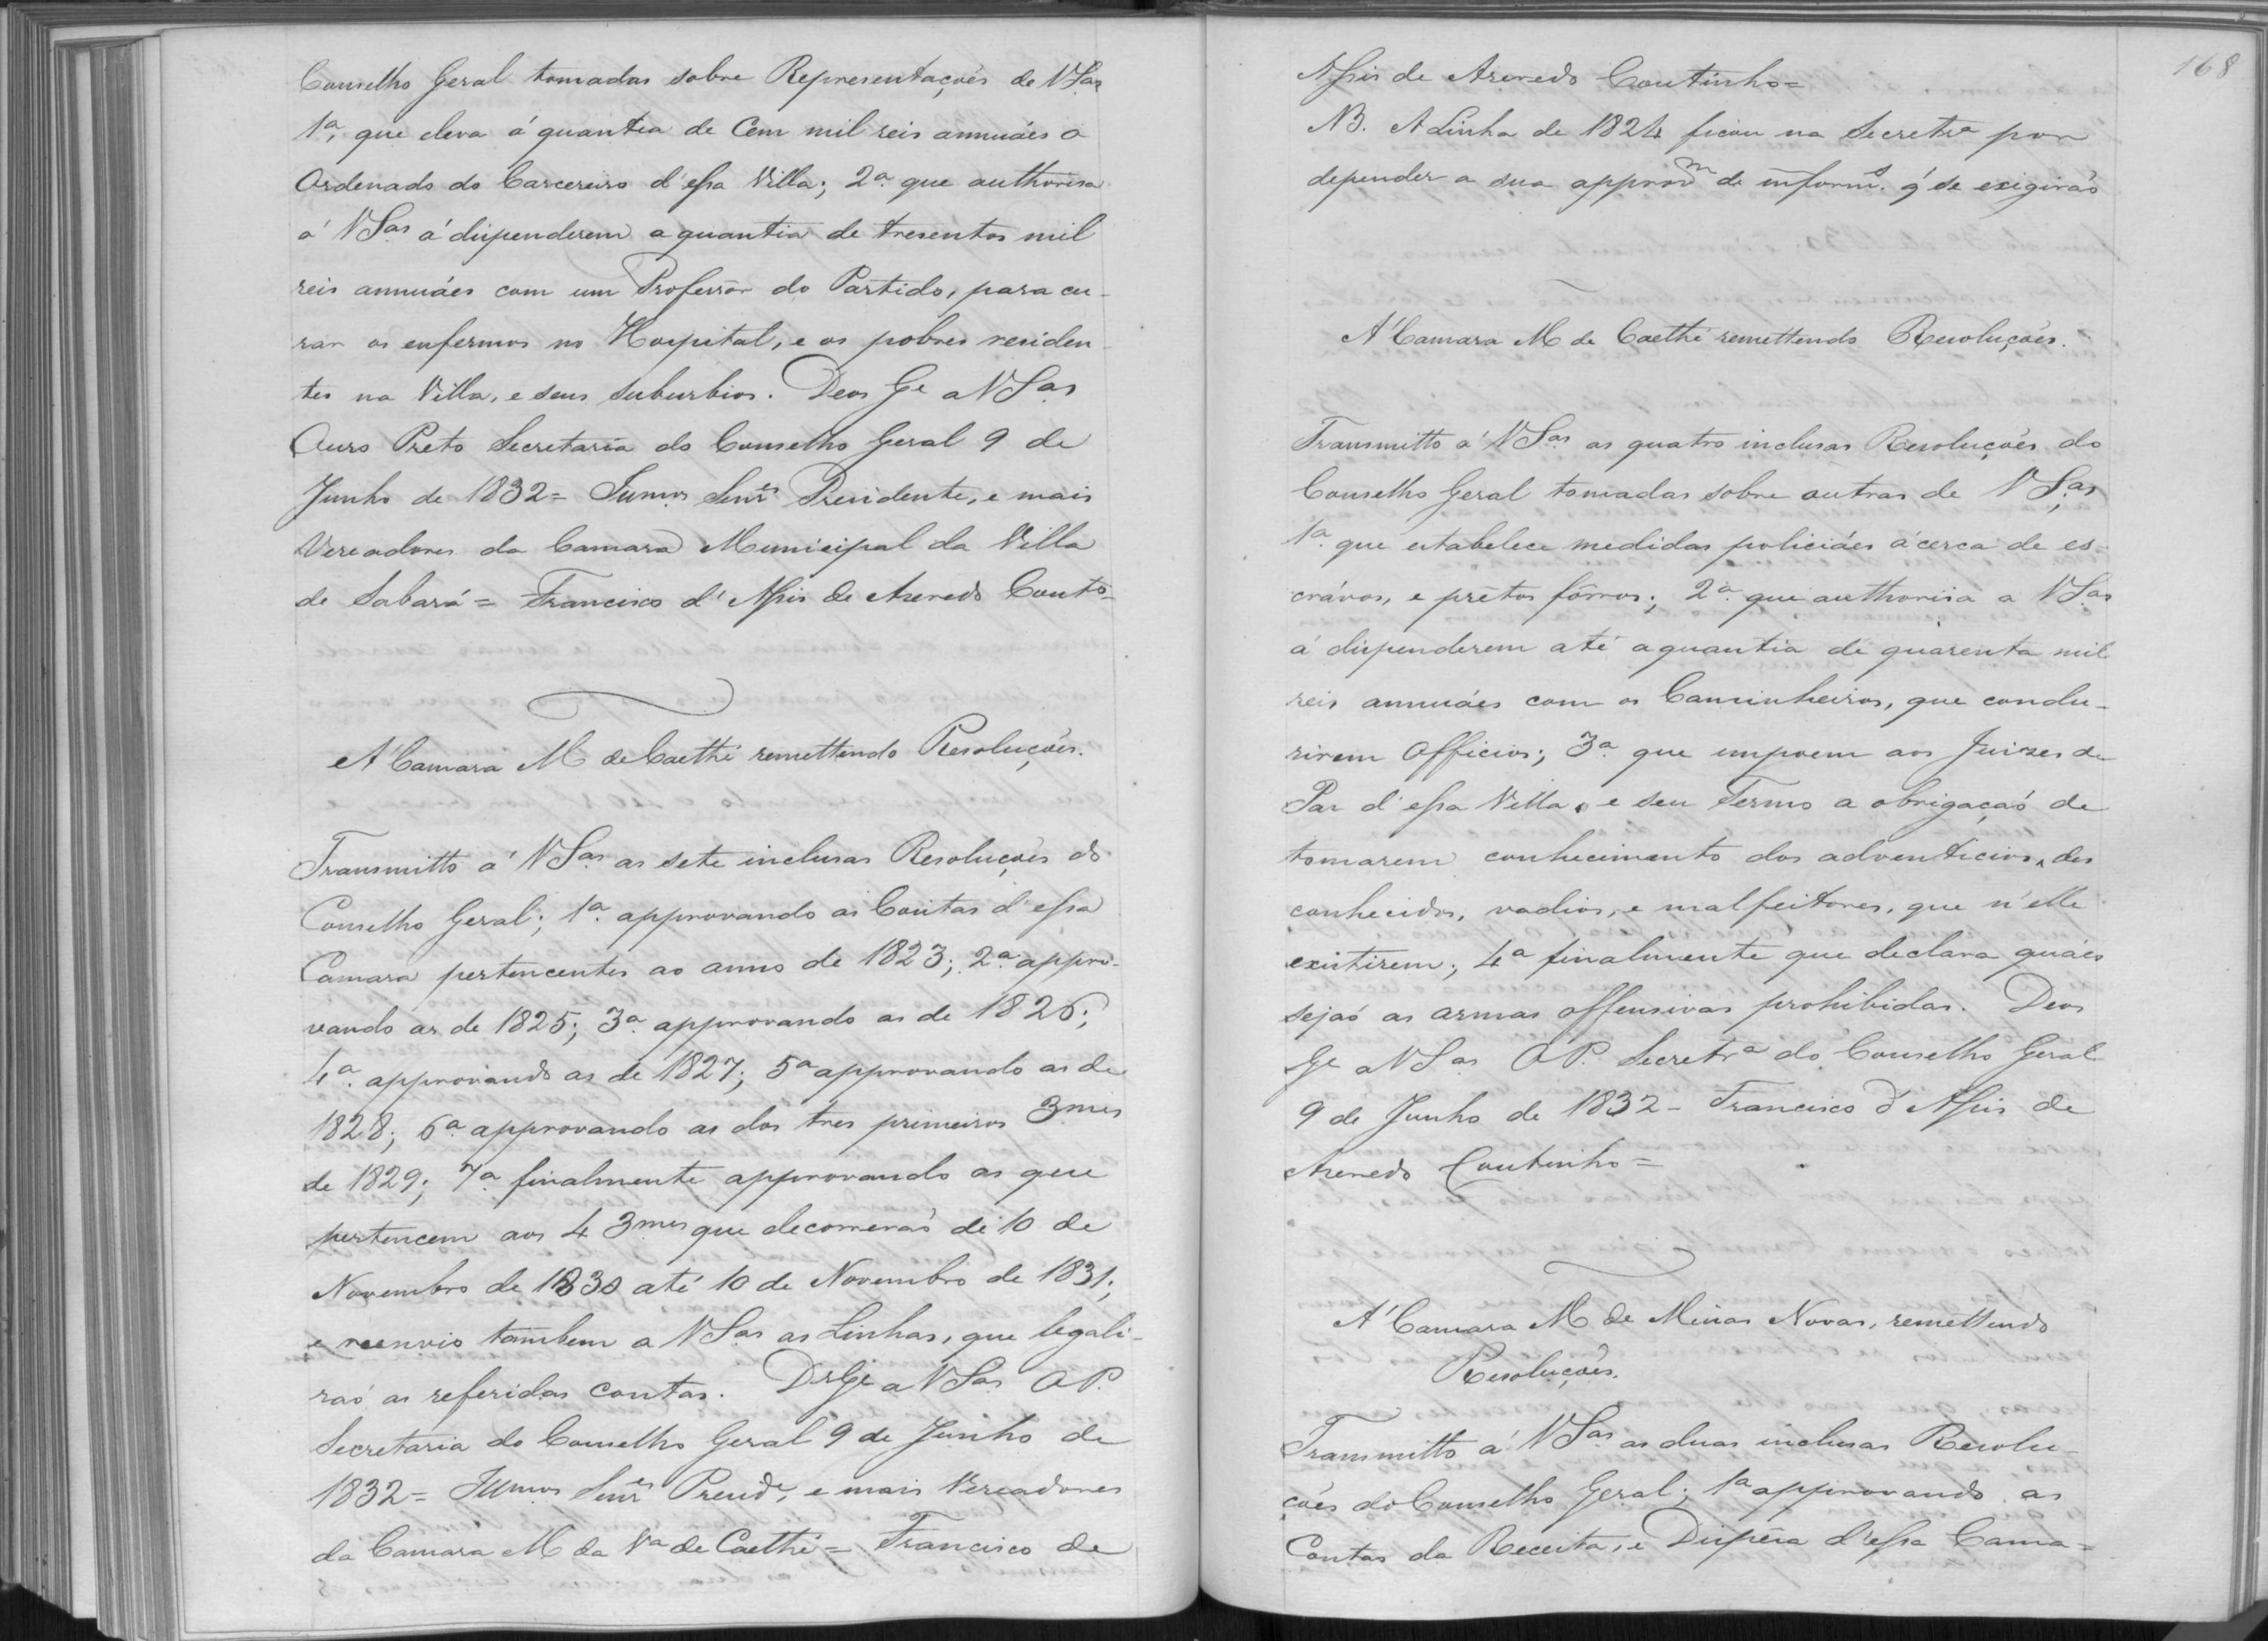 Conselho Geral tomadas sobre Representaçoẽs de VSas
1ª, que eleva á quantia de Cem mil reis annuáes o
Ordenado do Carcereiro d'essa Villa; 2ª que authorisa
á VSas á dispenderem a quantia de tresentos mil
reis annuáes com um Professor do Partido, para cu-
rar os enfermos no Hospital, e os pobres residen
tes na Villa, e seus suburbios. Deos Ge a VSas
Ouro Preto Secretaria do Conselho Geral 9 de
Junho de 1832= Illmos Senres Presidente, e mais
Vereadores da Camara Municipal da Villa
de Sabará = Francisco d'Assis de Azeredo Couto-
A' Camara M de Caethé remettendo Resoluçoẽs.
Transmitto á VSas as sete inclusas Resoluçoẽs do
Conselho Geral; 1ª approvando as Contas d'essa
Camara pertencentes ao anno de 1823; 2ª appro-
vando as de 1825; 3ª approvando as de 1826;
4ª approvando as de 1827; 5ª approvando as de
1828; 6ª approvando as dos tres primeiros 3mes
de 1829; 7ª finalmente approvando as que
pertencem aos 4 3mes que decorreraõ de 10 de
Novembro de 1830 até 10 de Novembro de 1831;
e reenvio tambem a VSas as Linhas, que legali-
saõ as referidas contas. Ds Ge a VSas O P.
Secretaria do Conselho Geral 9 de Junho de
1832= Illmos Senres Preside, e mais Vereadores
da Camara M da Va de Caethé = Francisco de
168
Assis de Azeredo Coutinho=
NB. A Linha de 1824 ficou na Secretra por
depender a sua approvm de informs. q' se exigiraõ
A' Camara M de Caethé remettendo Resoluçoẽs.
Transmitto á VSas as quatro inclusas Resoluçoẽs do
Conselho Geral tomadas sobre outras de VSas,
1ª que estabelece medidas policiáes ácerca de es-
crávos, e prêtos fôrros; 2ª que authorisa a VSas
á dispenderem até a quantia de quarenta mil
reis annuáes com os Caminheiros, que condu-
sirem Officios; 3ª que impoem aos Juizes de
Paz d'essa Villa, e seu Termo a obrigaçaõ de
tomarem conhecimento dos adventicios, des
conhecidos, vadios, e malfeitores, que n'elle
existirem; 4ª finalmente que declara quáes
sejaõ as armas offensivas prohibidas. Deos
Ge a VSas O P. Secretra do Conselho Geral
9 de Junho de 1832- Francisco d'Assis de
Azeredo Coutinho=
A' Camara M de Minas Novas, remettendo
Resoluçoẽs.
Transmitto á VSas as duas inclusas Resolu-
çoẽs do Conselho Geral; 1ª approvando as
Contas da Receita, e Dispeza d'essa Cama=